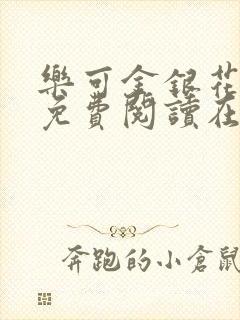 樂可金銀花
免費閱讀在
奔跑的小倉鼠